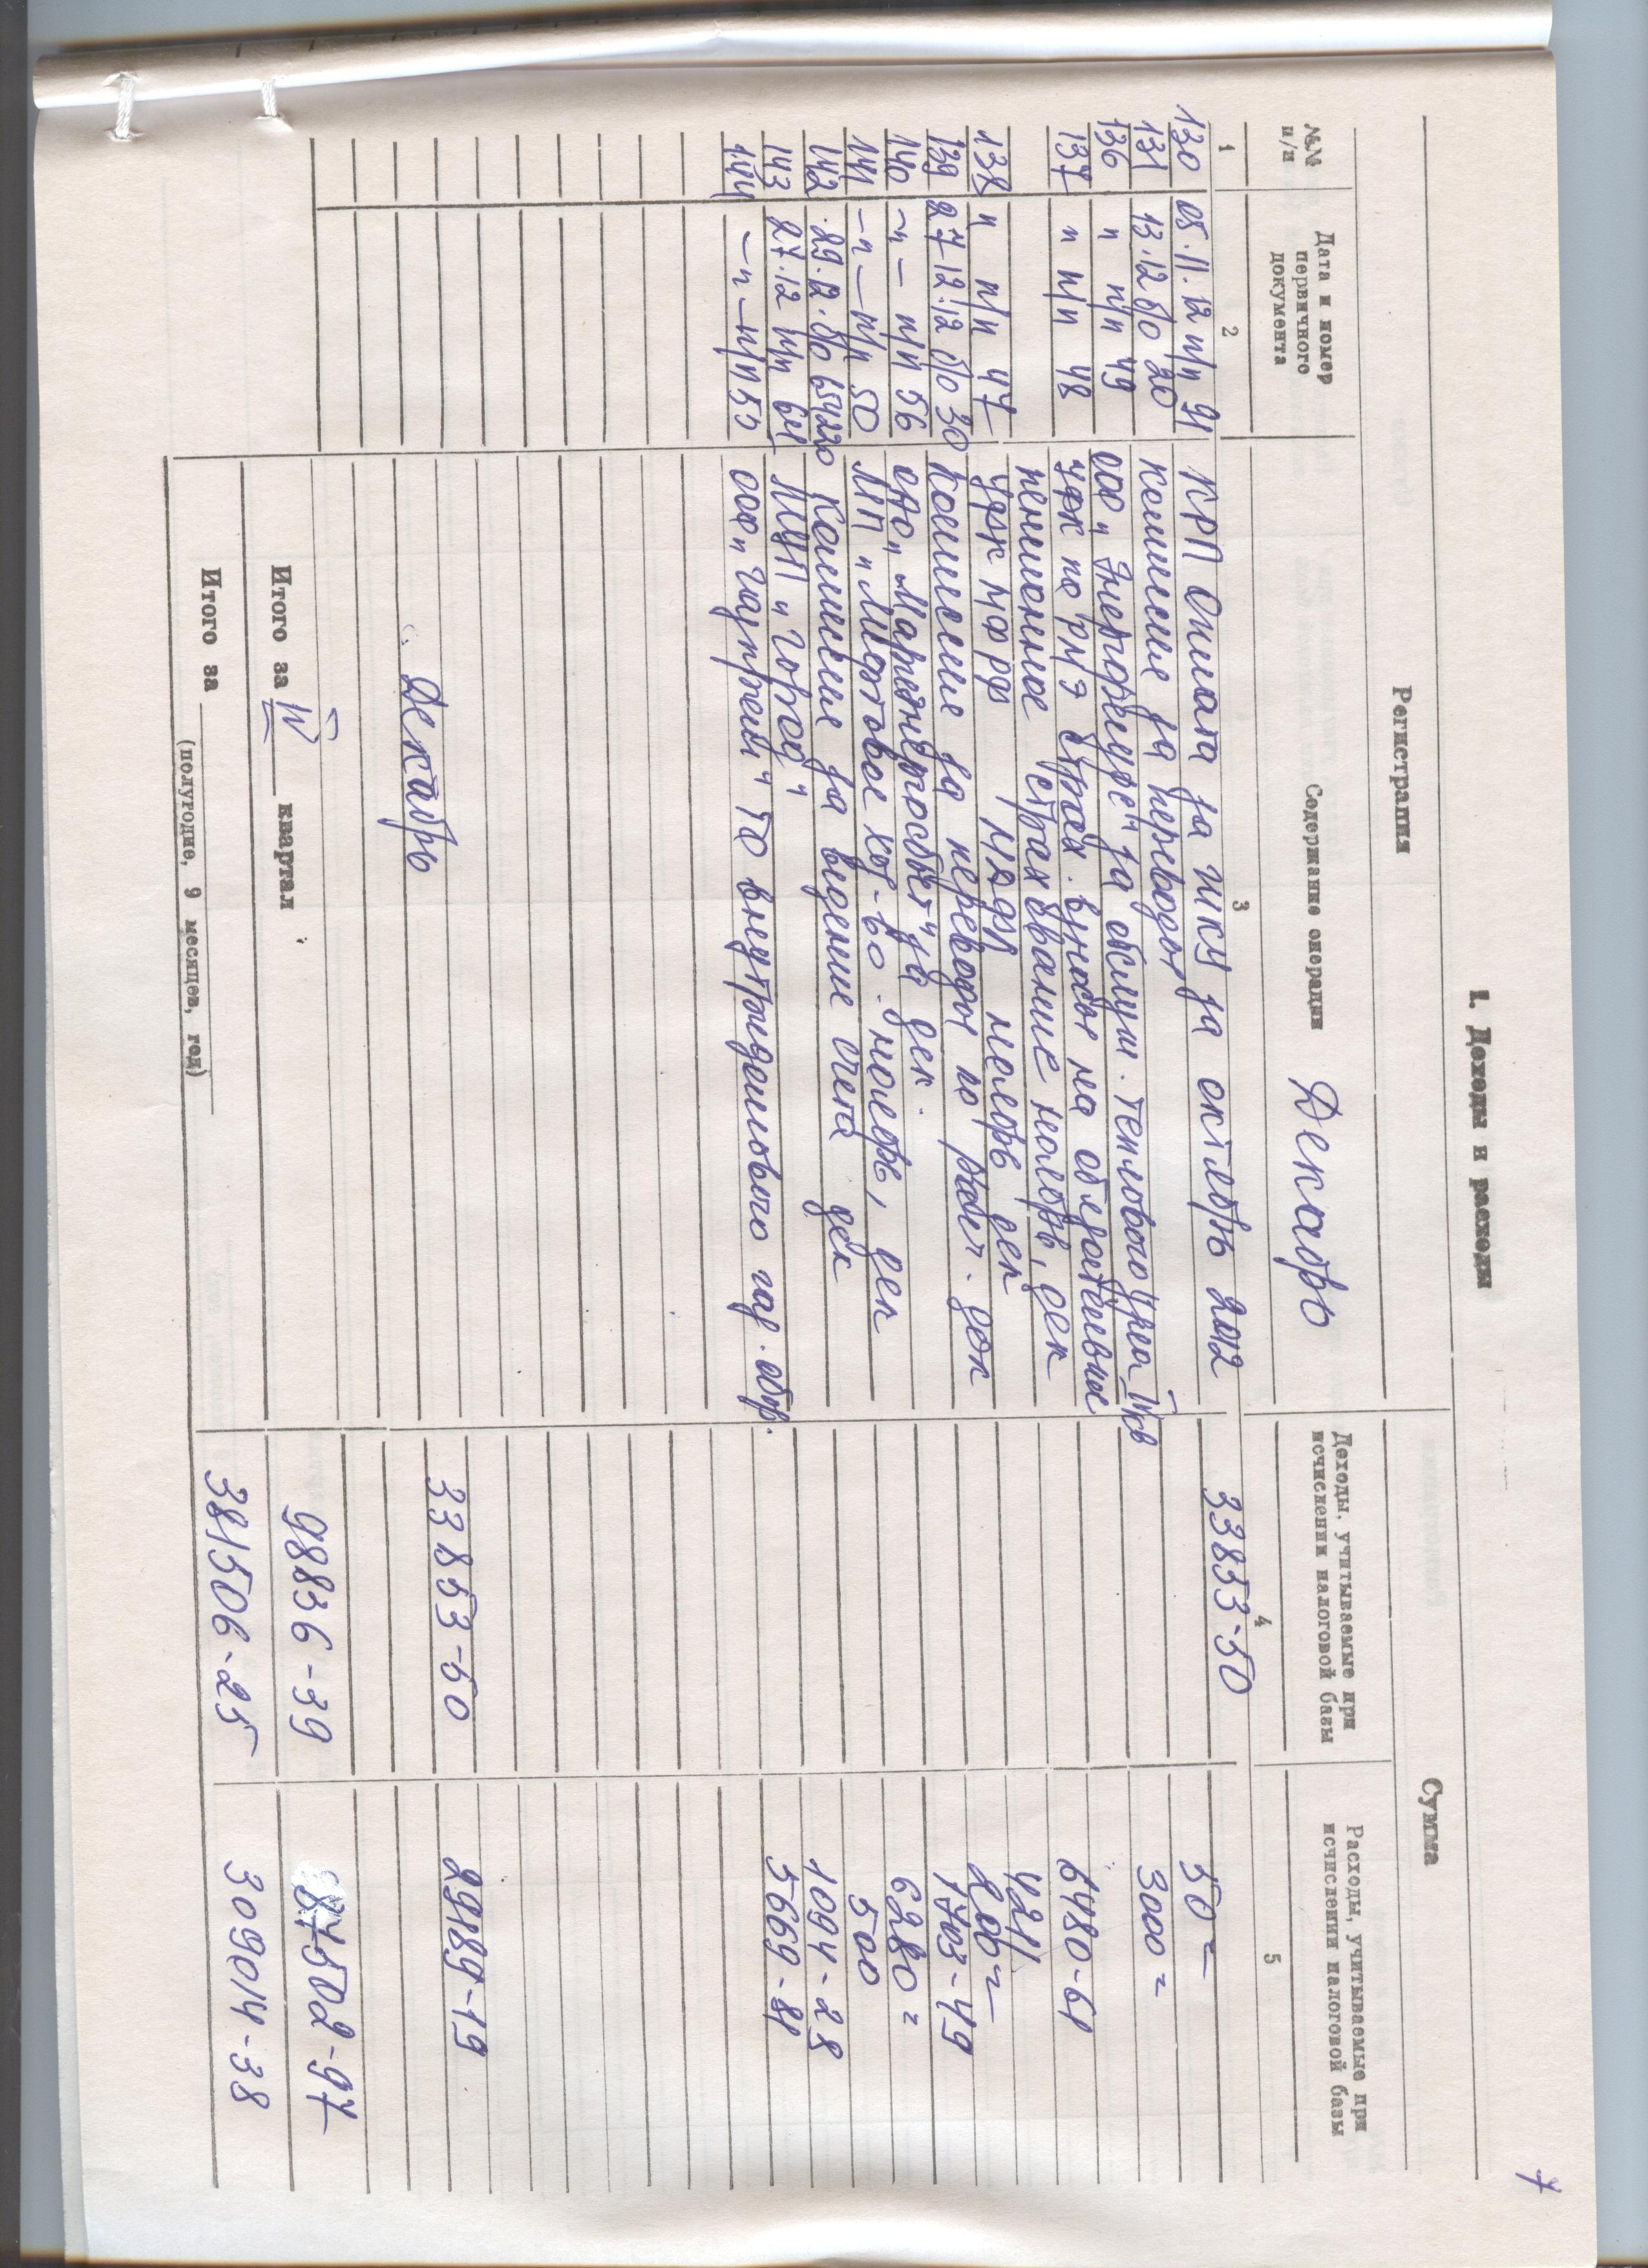 7
1. Доходы и расходы
Регистрация Сумма
№№ п/п Дата и номер первичного документа Содержание операции Декабрь Доходы, учитываемые при исчислении налоговой базы Расходы, учитываемые при исчислении налоговой базы
1 2 3 4 5
130 05.11.12 п/п 91 КРП Оплата за ЖКУ за октябрь 2012 33853-50
131 13.12 б/о 20 Комиссия за переводы 50=
136 " п/п 49 ООО "Энергоресурс" за обслуж. теплового узла IV кв 3000=
137 " п/п 48 УФК по РМЭ страх. взносы на обязательные
пенсионное страхование ноябрь, дек 6480-61
138 " п/п 47 УФК МФ РФ НДФЛ ноябрь дек. 4211
139 27.12.12 б/о 30 Комиссия за переводы по работ. дек 200=
140 -"- п/п 56 ОАО "Мариэнергосбыт" за дек. 1743-49
141 -"- п/п 50 МП "Лифтовое хоз-во" ноябрь, дек 6280=
142 29.12 б/о Комиссия за ведение счета дек 500
143 27.12 п/п МУП "Горсвет" 1094-28
144 -"- п/п ООО "Газпром" ТО внутридомового газ. обор. 5669-81
Декабрь 33853-50 29189-19
Итого за IV квартал 98836-39 87502-97
Итого за 381506-25 309014-38
(полугодие, 9 месяцев, год)